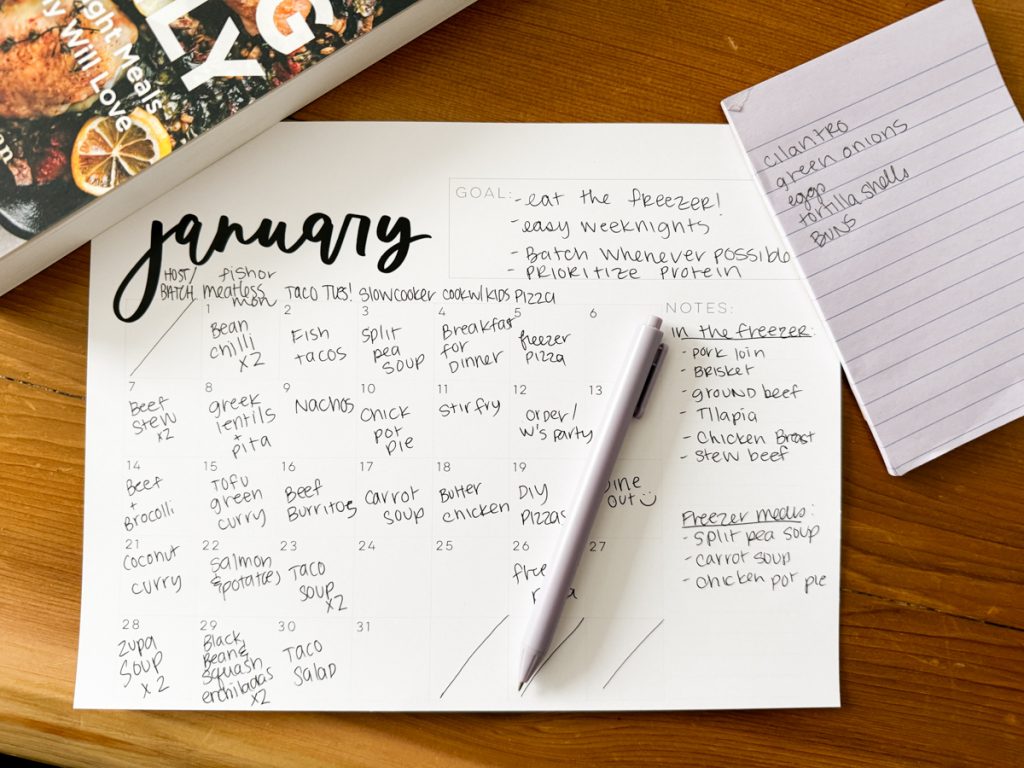 G
LY
ght Meals
ly Will Love
an
january
GOAL:
- eat the freezer!
- easy weeknights
- Batch whenever possible
- PRIORITIZE PROTEIN
HOST/
BATCH
fish or
meatless
mon
TACO TUES!
slowcooker
cook w/ kids
PIZZA
1
Bean
chilli
x2
2
Fish
tacos
3
split
pea
soup
4
Breakfast
for
Dinner
5
freezer
pizza
6
7
Beef
Stew
x2
8
greek
lentils
+
pita
9
Nachos
10
chick
pot
pie
11
stir fry
12
order/
W's party
13
14
Beef
+
Brocolli
15
Tofu
green
curry
16
Beef
Burritos
17
carrot
soup
18
Butter
chicken
19
DIY
Pizzas
ine
out
21
coconut
curry
22
salmon
& potatoes
23
Taco
soup
x2
24
25
26
free
27
28
zupa
soup
x2
29
Black
Bean &
squash
enchiladas
x2
30
Taco
salad
31
NOTES:
in the freezer:
- pork loin
- Brisket
- ground beef
- Tilapia
- Chicken Breast
- Stew beef
Freezer meals:
- split pea soup
- carrot soup
- chicken pot pie
cilantro
green onions
eggs
tortilla shells
BUNS